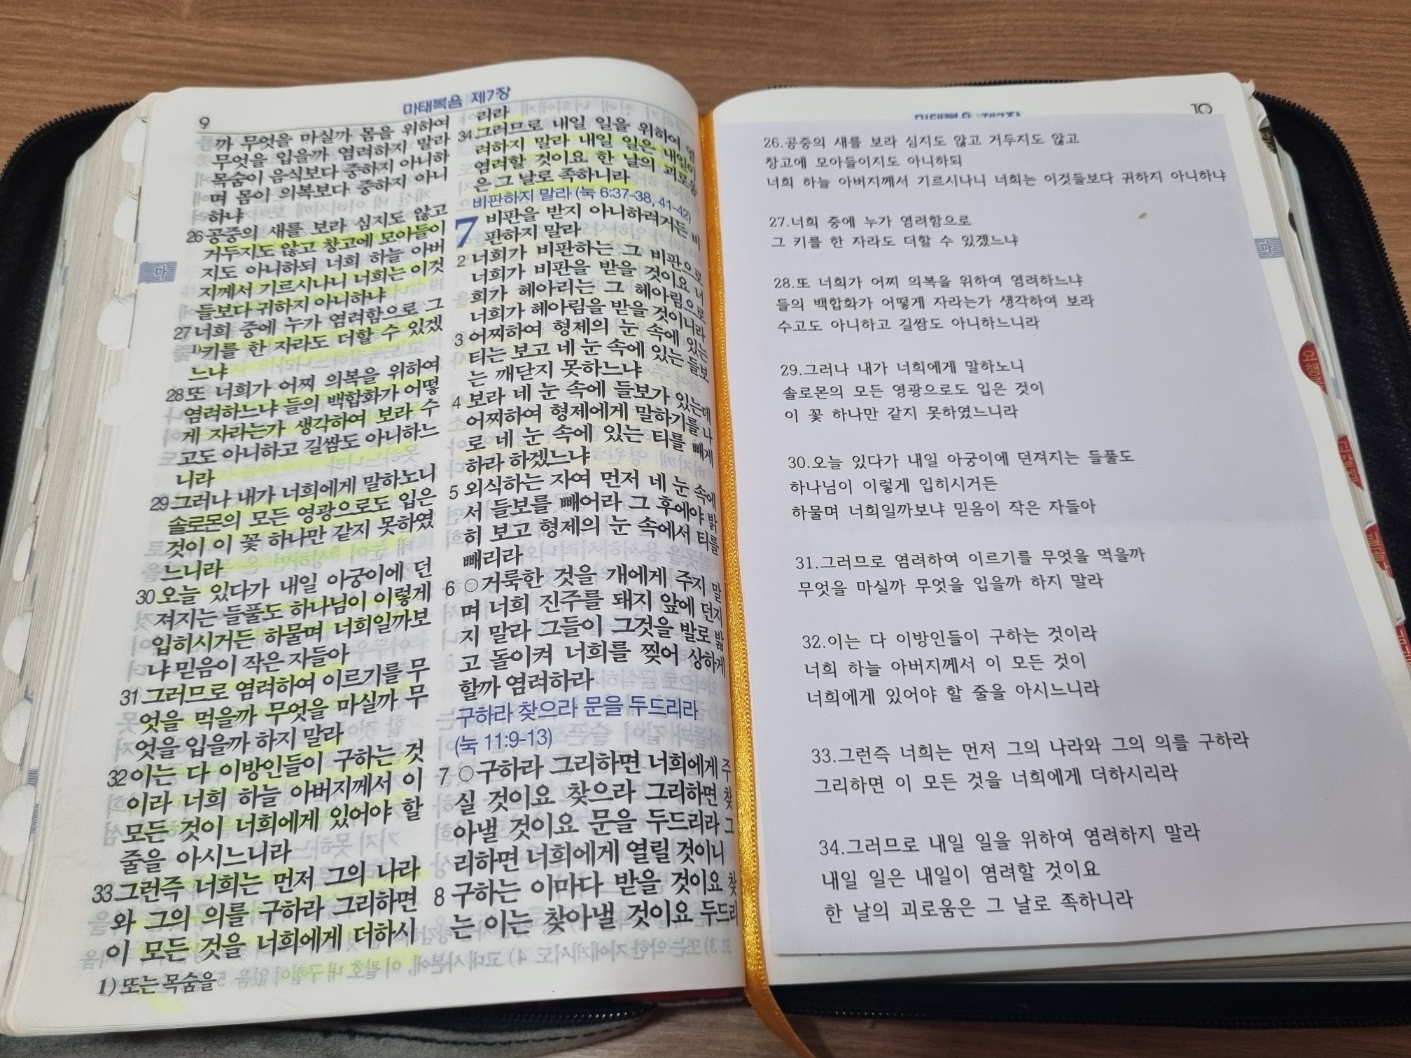 9
마태복음 제7장
까 무엇을 마실까 몸을 위하여
무엇을 입을까 염려하지 말라
목숨이 음식보다 중하지 아니하
며 몸이 의복보다 중하지 아니
하냐
26 공중의 새를 보라 심지도 않고
거두지도 않고 창고에 모아들이
지도 아니하되 너희 하늘 아버
지께서 기르시나니 너희는 이것
들보다 귀하지 아니하냐
27 너희 중에 누가 염려함으로 그
1)키를 한 자라도 더할 수 있겠
느냐
28 또 너희가 어찌 의복을 위하여
염려하느냐 들의 백합화가 어떻
게 자라는가 생각하여 보라 수
고도 아니하고 길쌈도 아니하느
니라
29 그러나 내가 너희에게 말하노니
솔로몬의 모든 영광으로도 입은
것이 이 꽃 하나만 같지 못하였
느니라
30 오늘 있다가 내일 아궁이에 던
져지는 들풀도 하나님이 이렇게
입히시거든 하물며 너희일까보
냐 믿음이 작은 자들아
31 그러므로 염려하여 이르기를 무
엇을 먹을까 무엇을 마실까 무
엇을 입을까 하지 말라
32 이는 다 이방인들이 구하는 것
이라 너희 하늘 아버지께서 이
모든 것이 너희에게 있어야 할
줄을 아시느니라
33 그런즉 너희는 먼저 그의 나라
와 그의 의를 구하라 그리하면
이 모든 것을 너희에게 더하시
1) 또는 목숨을
리라
34 그러므로 내일 일을 위하여 염
려하지 말라 내일 일은 내일이
염려할 것이요 한 날의 괴로움
은 그 날로 족하니라
비판하지 말라 (눅 6:37-38, 41-42)
7 비판을 받지 아니하려거든 비
판하지 말라
2 너희가 비판하는 그 비판으로
너희가 비판을 받을 것이요 너
희가 헤아리는 그 헤아림으로
너희가 헤아림을 받을 것이니라
3 어찌하여 형제의 눈 속에 있는
티는 보고 네 눈 속에 있는 들보
는 깨닫지 못하느냐
4 보라 네 눈 속에 들보가 있는데
어찌하여 형제에게 말하기를 나
로 네 눈 속에 있는 티를 빼게
하라 하겠느냐
5 외식하는 자여 먼저 네 눈 속에
서 들보를 빼어라 그 후에야 밝
히 보고 형제의 눈 속에서 티를
빼리라
6 ○거룩한 것을 개에게 주지 말
며 너희 진주를 돼지 앞에 던지
지 말라 그들이 그것을 발로 밟
고 돌이켜 너희를 찢어 상하게
할까 염려하라
구하라 찾으라 문을 두드리라
(눅 11:9-13)
7 ○구하라 그리하면 너희에게 주
실 것이요 찾으라 그리하면 찾
아낼 것이요 문을 두드리라 그
리하면 너희에게 열릴 것이니
8 구하는 이마다 받을 것이요 찾
는 이는 찾아낼 것이요 두드리
마
10
26.공중의 새를 보라 심지도 않고 거두지도 않고
창고에 모아들이지도 아니하되
너희 하늘 아버지께서 기르시나니 너희는 이것들보다 귀하지 아니하냐
27.너희 중에 누가 염려함으로
그 키를 한 자라도 더할 수 있겠느냐
28.또 너희가 어찌 의복을 위하여 염려하느냐
들의 백합화가 어떻게 자라는가 생각하여 보라
수고도 아니하고 길쌈도 아니하느니라
29.그러나 내가 너희에게 말하노니
솔로몬의 모든 영광으로도 입은 것이
이 꽃 하나만 같지 못하였느니라
30.오늘 있다가 내일 아궁이에 던져지는 들풀도
하나님이 이렇게 입히시거든
하물며 너희일까보냐 믿음이 작은 자들아
31.그러므로 염려하여 이르기를 무엇을 먹을까
무엇을 마실까 무엇을 입을까 하지 말라
32.이는 다 이방인들이 구하는 것이라
너희 하늘 아버지께서 이 모든 것이
너희에게 있어야 할 줄을 아시느니라
33.그런즉 너희는 먼저 그의 나라와 그의 의를 구하라
그리하면 이 모든 것을 너희에게 더하시리라
34.그러므로 내일 일을 위하여 염려하지 말라
내일 일은 내일이 염려할 것이요
한 날의 괴로움은 그 날로 족하니라
마